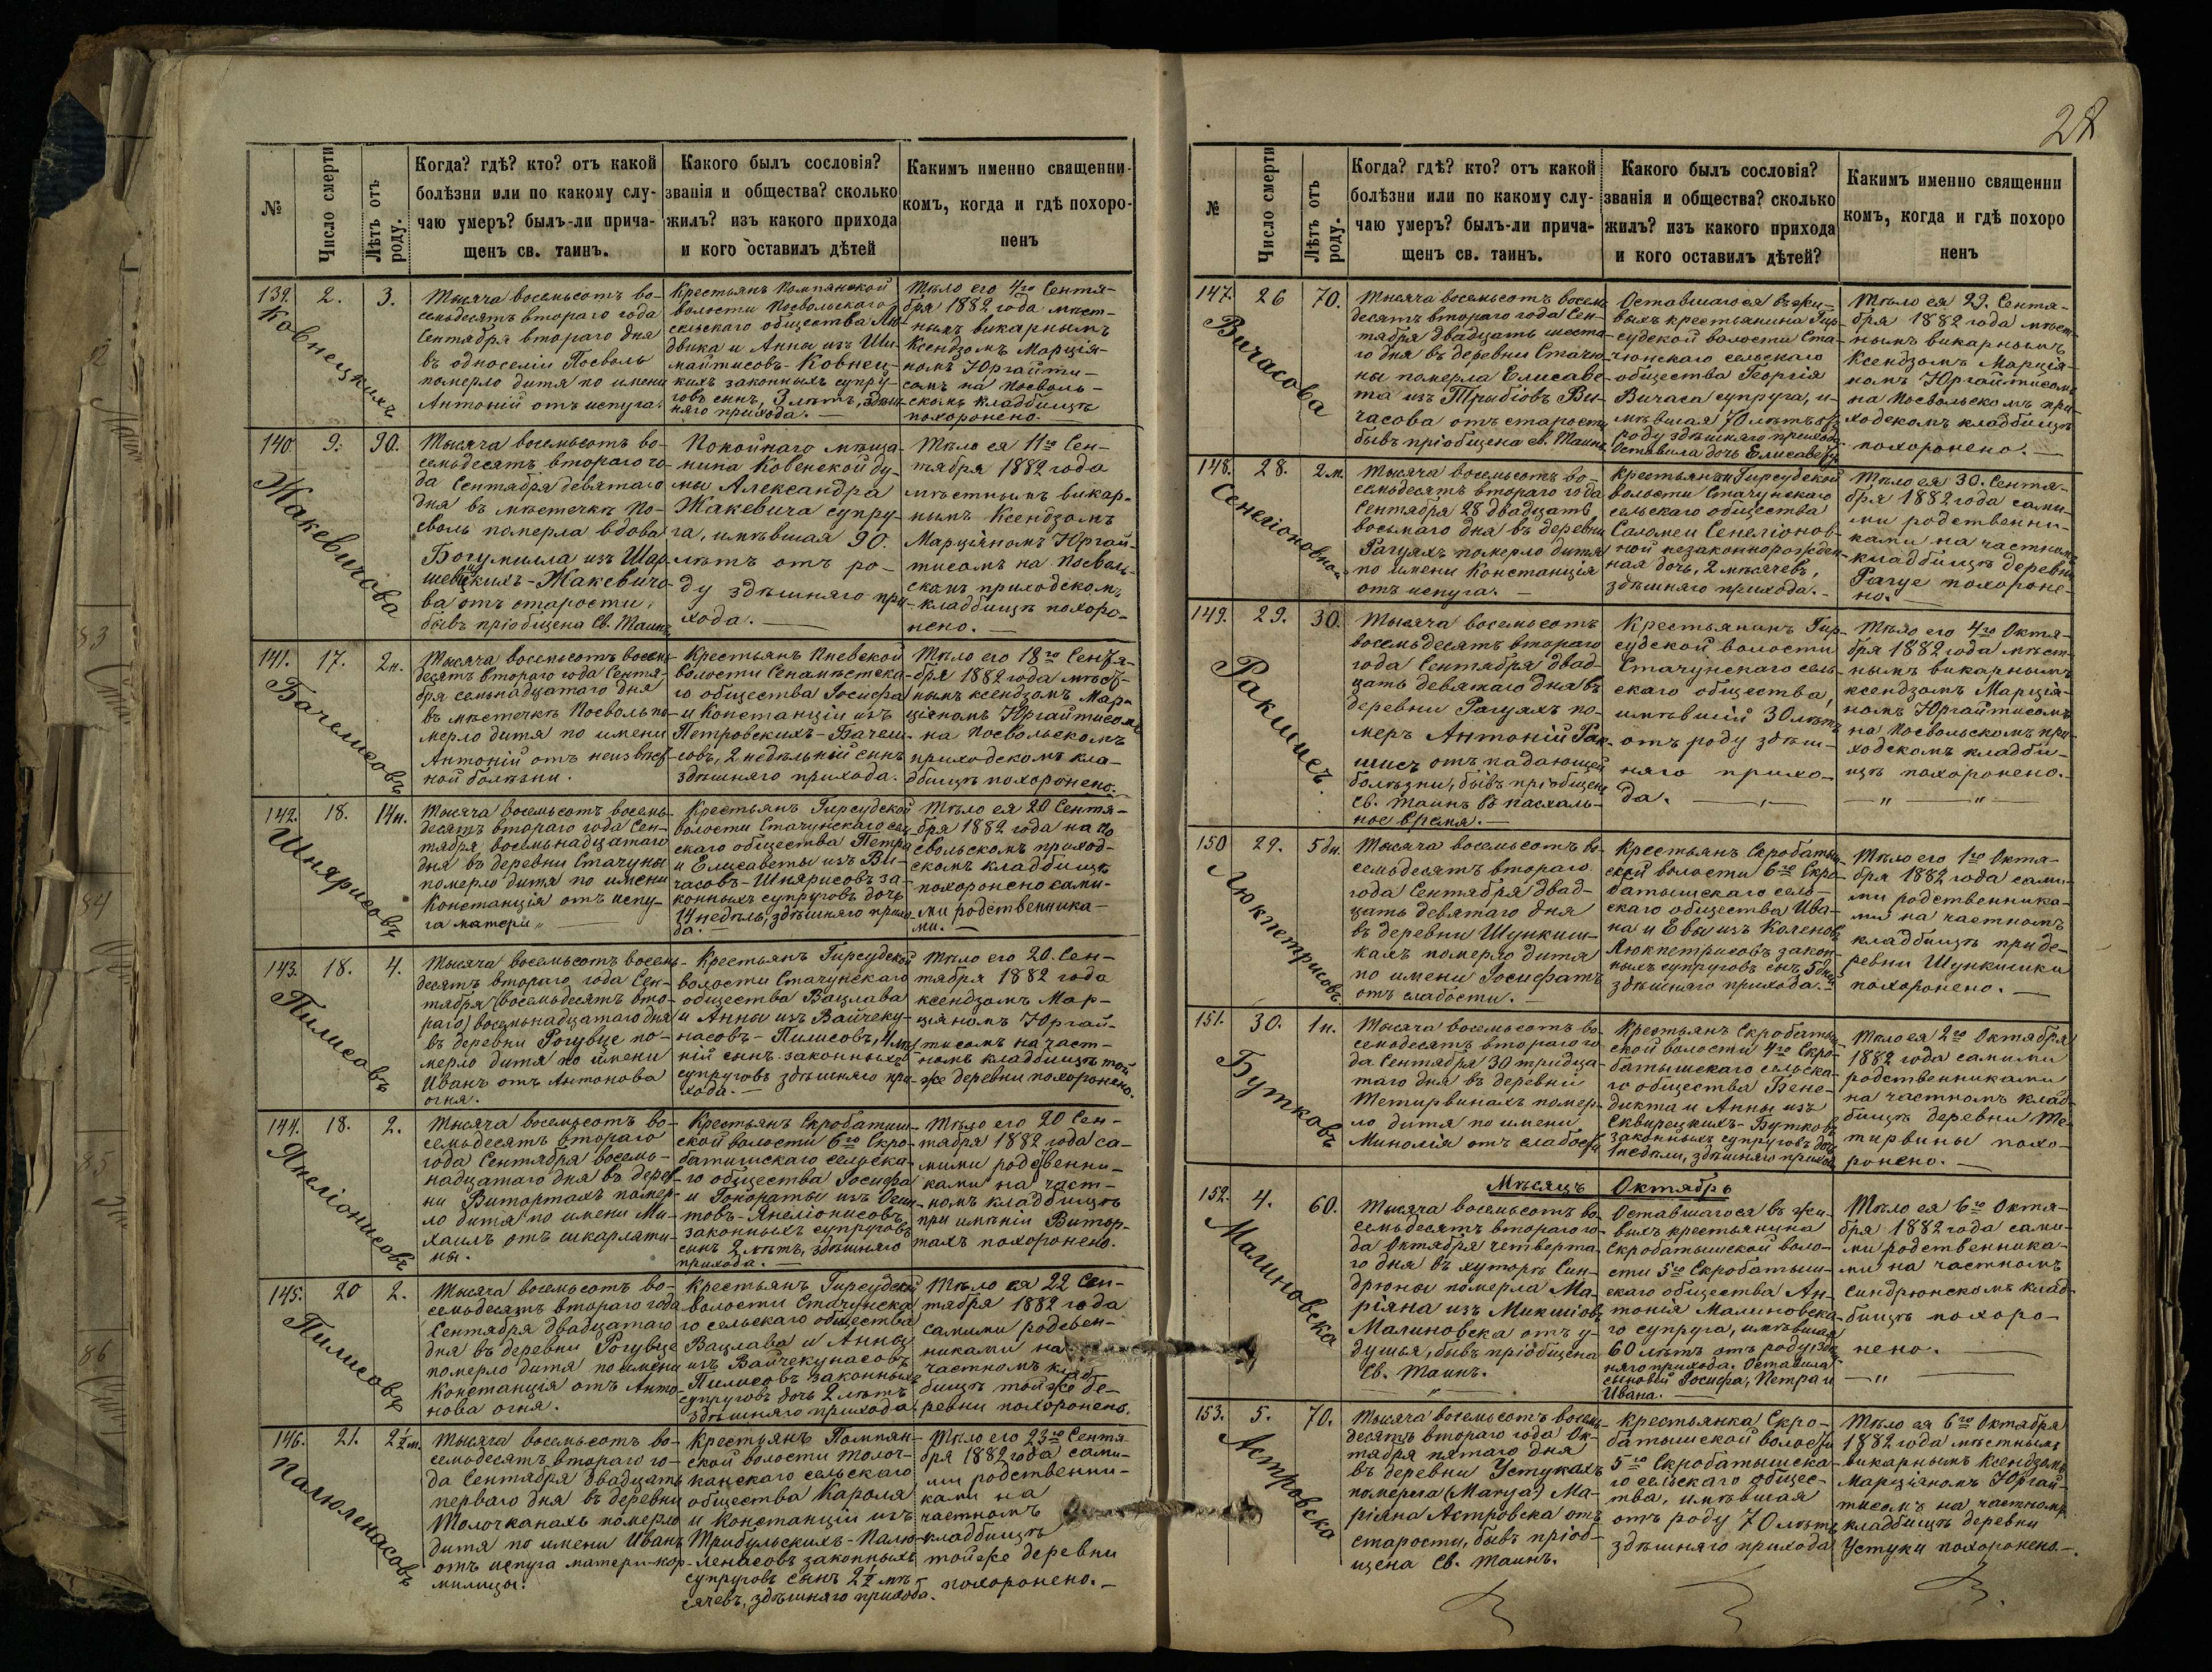 28
№
Число смерти
Лѣтъ отъ роду.
Когда? гдѣ? кто? отъ какой
болѣзни или по какому слу-
чаю умеръ? былъ-ли прича-
щенъ св. таинъ.
Какого былъ сословія?
званія и общества? сколько
жилъ? изъ какого прихода
и кого оставилъ дѣтей
Какимъ именно священни-
комъ, когда и гдѣ похоро-
ненъ
139.
Ковнецкихъ.
2.
3.
Тысяча восемьсотъ во-
семьдесятъ втораго года
Сентября втораго дня
въ односеліи Посволь
померло дитя по имени
Антоній отъ испуга.
Крестьянъ Помпянской
волости Посвольскаго
сельскаго общества Лю-
двика и Анны изъ Ши-
майтисовъ-Ковнец-
кихъ законныхъ супру-
говъ сынъ, 3 лѣтъ, здѣш-
няго прихода. —
Тѣло его 4го Сентя-
бря 1882 года мѣст-
нымъ викарнымъ
Ксендзомъ Марція-
номъ Юргайти-
сомъ на Посволь-
скомъ кладбищѣ
похоронено.
140.
Жакевичова
9.
90.
Тысяча восемьсотъ во-
семьдесятъ втораго го-
да Сентября девятаго
дня въ мѣстечкѣ По-
своль померла вдова
Богумила изъ Шар-
шевицкихъ-Жакевичо-
ва отъ старости,
бывъ пріобщена Св. Таинъ
Покойнаго мѣща-
нина Ковенской ду-
мы Александра
Жакевича супру-
га, имѣвшая 90.
лѣтъ отъ ро-
ду здѣшняго при-
хода. —
Тѣло ея 11го Сен-
тября 1882 года
мѣстнымъ викар-
нымъ Ксендзомъ
Марціаномъ Юргай-
тисомъ на Посволь-
скомъ приходскомъ
кладбищѣ похоро-
нено. —
141.
Бачелисовъ
17.
2н.
Тысяча восемьсотъ восемь-
десятъ втораго года Сентя-
бря семьнадцатаго дня
въ мѣстечкѣ Посволь по-
мерло дитя по имени
Антоній отъ неизвѣст-
ной болѣзни.
Крестьянъ Пневской
волости
го общества Іосифа
и Констанціи изъ
Петровскихъ-Бачели-
совъ, 2 недѣльній сынъ
здѣшняго прихода.
Тѣло его 18го Сентя-
бря 1882 года мѣст-
нымъ ксендзомъ Мар-
ціаномъ Юргайтисомъ
на Посвольскомъ
приходскомъ кла-
дбищѣ похоронено.
142.
Шнярисовъ
18.
14н.
Тысяча восемьсотъ восемь-
десятъ втораго года Сен-
тября восемьнадцатаго
дня въ деревни Стачуны
померло дитя по имени
Констанція отъ испу-
га матери „ —
Крестьянъ Гирсудской
волости Стачунскаго сель-
скаго общества Петра
и Елисаветы изъ Ви-
часовъ-Шнярисовъ за-
конныхъ супруговъ дочь
14 недѣль, здѣшняго прихо-
да. —
Тѣло ея 20 Сентя-
бря 1882 года на По
свольскомъ приход-
скомъ кладбищѣ
похоронено сами-
ми родственника-
ми. —
143.
Пилисовъ
18.
4.
Тысяча восемьсотъ восемь-
десятъ втораго года Сен-
тября (восемьдесятъ вто-
раго) восемьнадцатаго дня
въ деревни Рогувце по-
мерло дитя по имени
Иванъ отъ Антонова
огня.
Крестьянъ Гирсудской
волости Стачунскаго
общества Вацлава
и Анны изъ Вайчеку-
насовъ-Пилисовъ, 4 лѣт-
ній сынъ законныхъ
супруговъ здѣшняго при-
хода. —
Тѣло его 20. Сен-
тября 1882 года
ксендзомъ Мар-
ціяномъ Юргай-
тисомъ на част-
номъ кладбищѣ той
же деревни похоронено.
144.
Янеліонисовъ
18.
2.
Тысяча восемьсотъ во-
семьдесятъ втораго
года Сентября восемь-
надцатаго дня въ дерев-
ни Витортахъ помер-
ло дитя по имени Ми-
хаилъ отъ шкарляти-
ны.
Крестьянъ Скробатиш-
ской волости 6го Скро-
батишскаго сельска-
го общества Іосифа
и Гонораты изъ Оси-
товъ-Янеліонисовъ
законныхъ супруговъ
сынъ 2 лѣтъ, здѣшняго
прихода. —
Тѣло его 20 Сен-
тября 1882 года са-
мими родственни-
ками на част-
номъ кладбищѣ
при имѣніи Витор-
тахъ похоронено.
145.
Пилисовъ
20
2.
Тысяча восемьсотъ во-
семьдесятъ втораго года
Сентября двадцатаго
дня въ деревни Рогувце
померло дитя по имени
Констанція отъ Анто-
нова огня.
Крестьянъ Гирсудской
волости Стачунска-
го сельскаго общества
Вацлава и Анны
изъ Вайчекунасовъ
Пилисовъ законныхъ
супруговъ дочь 2 лѣтъ
здѣшняго прихода.
Тѣло ея 22 Сен-
тября 1882 года
самими родствен-
никами на
частномъ клад-
бищѣ тойже де-
ревни похоронено.
146.
Палюленасовъ
21.
2½м.
Тысяча восемьсотъ во-
семьдесятъ втораго го-
да Сентября двадцать
перваго дня въ деревни
Толочканахъ померло
дитя по имени Иванъ
отъ испуга матери-кор-
милицы.
Крестьянъ Помпян-
ской волости Толоч-
канскаго сельскаго
общества Кароля
и Констанціи изъ
Трибульскихъ-Палю-
ленасовъ законныхъ
супруговъ сынъ 2½ мѣ-
сячевъ, здѣшняго прихода.
Тѣло его 23го Сентя
бря 1882 года сами-
ми родственни-
ками на
частномъ
кладбищѣ
тойже деревни
похоронено. —
№
Число смерти
Лѣтъ отъ роду.
Когда? гдѣ? кто? отъ какой
болѣзни или по какому слу-
чаю умеръ? былъ-ли прича-
щенъ св. таинъ.
Какого былъ сословія?
званія и общества? сколько
жилъ? изъ какого прихода
и кого оставилъ дѣтей?
Какимъ именно священни
комъ, когда и гдѣ похоро
ненъ
147.
Вичасова
26
70.
Тысяча восемьсотъ восемь
десятъ втораго года Сен-
тября двадцать шеста-
го дня въ деревни Стачю-
ны померла Елисаве-
та изъ Трибіовъ Ви-
часова отъ старости
бывъ пріобщена св. Таинъ
Оставшагося въ жи-
выхъ крестьянина Гир-
судской волости Ста-
чюнскаго сельскаго
общества Георгія
Вичаса супруга, и-
мѣвшая 70 лѣтъ отъ
роду здѣшняго прихода.
Оставила дочь Елисавету
Тѣло ея 29. Сентя-
бря 1882 года мѣст-
нымъ викарнымъ
Ксендзомъ Марція-
номъ Юргайтисомъ
на Посвольскомъ при-
ходскомъ кладбищѣ
похоронено. —
148.
Сенеліоновной
28.
2м.
Тысяча восемьсотъ во-
семьдесятъ втораго года
Сентября 28 двадцать
восьмаго дня въ деревни
Рагуяхъ померло дитя
по имени Констанція
отъ испуга. —
Крестьянки Гирсудской
волости Стачунскаго
сельскаго общества
Саломеи Сенеліонов-
ной незаконнорожден-
ная дочь, 2 мѣсячевъ,
здѣшняго прихода. —
Тѣло ея 30. Сентя-
бря 1882 года сами-
ми родственни-
ками на частномъ
кладбищѣ деревни
Рагуе похороне-
но. —
149.
Ракшисъ.
29.
30.
Тысяча восемьсотъ
восемьдесятъ втораго
года Сентября двад-
цать девятаго дня въ
деревни Рагуяхъ по-
меръ Антоній Рак-
шисъ отъ падающей
болѣзни, бывъ пріобщенъ
св. Таинъ въ пасхаль-
ное время. —
Крестьянинъ Гир-
судской волости
Стачунскаго сель-
скаго общества,
имѣвшій 30 лѣтъ
отъ роду здѣш-
няго прихо-
да. — „ —
Тѣло его 4го Октя-
бря 1882 года мѣст-
нымъ викарнымъ
ксендзомъ Марція-
номъ Юргайтисомъ
на Посвольскомъ при-
ходскомъ кладби-
щѣ похоронено. —
— „ — „ —
150
Люкпетрисовъ
29.
5дн.
Тысяча восемьсотъ во-
семьдесятъ втораго
года Сентября двад-
цать девятаго дня
въ деревни Шункиш-
кахъ померло дитя
по имени Іосифатъ
отъ слабости. —
Крестьянъ Скробатыш-
ской волости 6го Скро-
батышскаго сель-
скаго общества Ива-
на и Евы изъ Каленовъ
Люкпетрисовъ закон-
ныхъ супруговъ сынъ, 5 дней
здѣшняго прихода. —
Тѣло его 1го Октя-
бря 1882 года сами-
ми родственника-
ми на частномъ
кладбищѣ при де-
ревни Шункишки
похоронено. —
151.
Бутковъ
30.
1н.
Тысяча восемьсотъ во-
семьдесятъ втораго го-
да Сентября 30 тридца-
таго дня въ деревни
Тетирвинахъ помер-
ло дитя по имени
Минолія отъ слабости
Крестьянъ Скробатыш-
ской волости 4го Скро-
батышскаго сельска-
го общества Бене-
дикта и Анны изъ
Сквирецкихъ-Бутковъ
законныхъ супруговъ дочь
1 недѣли, здѣшняго прихода
Тѣло ея 2го Октября
1882 года самими
родственниками
на частномъ клад-
бищѣ деревни Те-
тирвины похо-
ронено. —
Мѣсяцъ Октябрь
152.
Малиновска
4.
60.
Тысяча восемьсотъ во-
семьдесятъ втораго го-
да Октября четверта-
го дня въ хуторѣ Син-
дрюны померла Ма-
ріяна изъ Микшіовъ
Малиновска отъ у-
душья, бывъ пріобщена
Св. Таинъ.
Оставшагося въ жи-
выхъ крестьянина
Скробатышской воло-
сти 5го Скробатыш-
скаго общества Ан-
тонія Малиновска-
го супруга, имѣвшая
60 лѣтъ отъ роду, здѣш-
няго прихода. Оставила
сыновей Іосифа, Петра и
Ивана. —
Тѣло ея 6го Октя-
бря 1882 года сами-
ми родственника-
ми на частномъ
Синдрюнскомъ клад-
бищѣ похоро-
нено. —
— „ —
153.
Астровска
5.
70.
Тысяча восемьсотъ восемь
десятъ втораго года Ок-
тября пятаго дня
въ деревни Устукахъ
померла (Marya) Ма-
ріяна Астровска отъ
старости, бывъ пріоб-
щена Св. Таинъ.
Крестьянка Скро-
батышской волости
5го Скробатышска-
го сельскаго общес-
тва, имѣвшая
отъ роду 70 лѣтъ
здѣшняго прихода
Тѣло ея 6го Октября
1882 года мѣстнымъ
викарнымъ Ксендзомъ
Марціаномъ Юргай-
тисомъ на частномъ
кладбищѣ деревни
Устуки похоронено. —